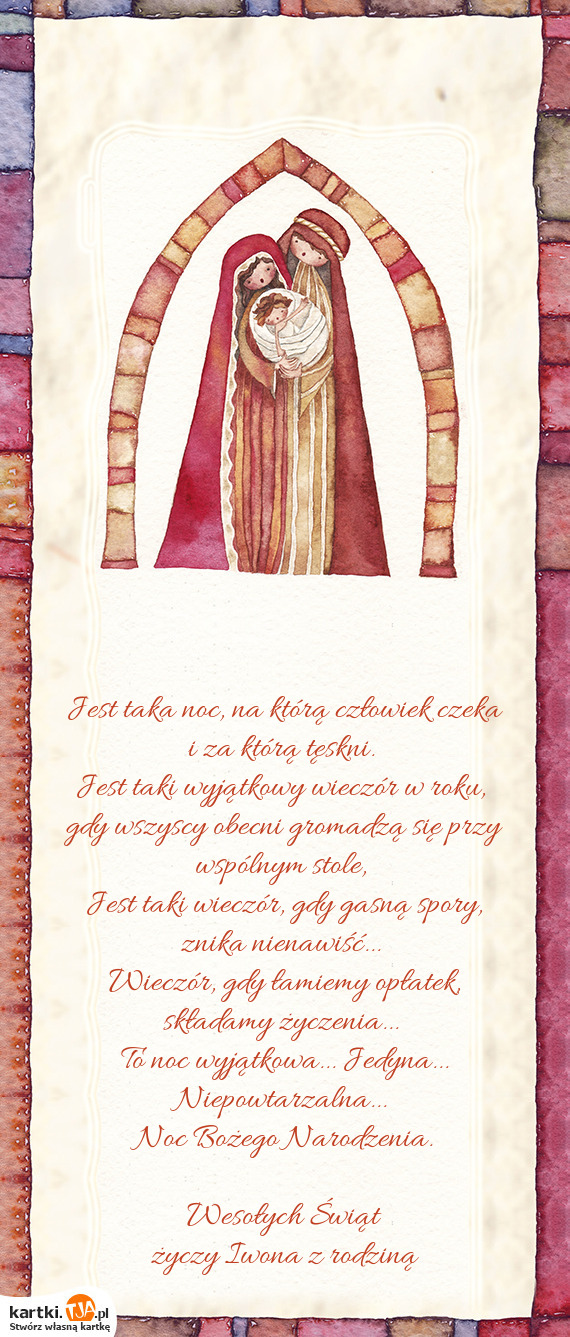 Jest taka noc, na którą człowiek czeka
i za którą tęskni.
Jest taki wyjątkowy wieczór w roku,
gdy wszyscy obecni gromadzą się przy
wspólnym stole,
Jest taki wieczór, gdy gasną spory,
znika nienawiść...
Wieczór, gdy łamiemy opłatek,
składamy życzenia...
To noc wyjątkowa... Jedyna...
Niepowtarzalna...
Noc Bożego Narodzenia.
Wesołych Świąt
życzy Iwona z rodziną
kartki.TJA.pl
Stwórz własną kartkę